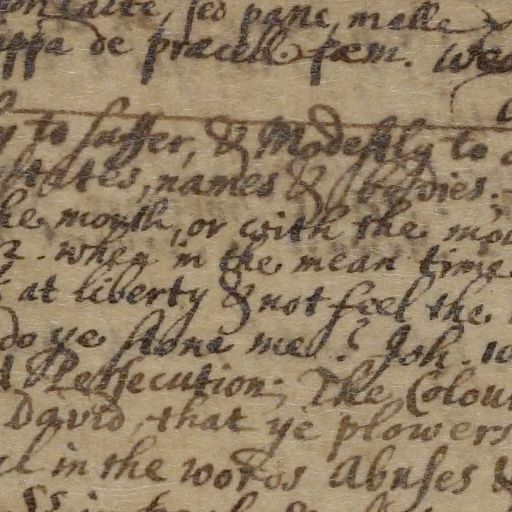 sed pane, malle
de præcell. fœm.
to suffer, & Modestly to
states, names & bodies;
mouth, or with the
2. when in the mean time
at liberty & not feel the
do ye stone me? Joh. 10
Persecution; The Colour
David, that ye plowers
in the words Abuses &